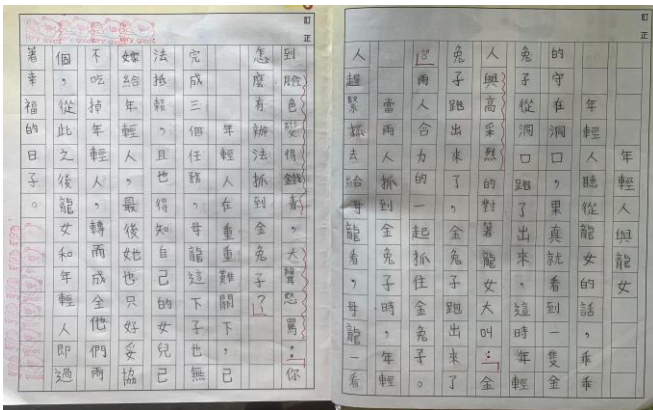 訂正
年輕人與龍女
年輕人聽從龍女的話，乖乖
的守在洞口，果真就看到一隻金
兔子從洞口跑了出來，這時年輕
人興高采烈的對著龍女大叫：「金
兔子跑出來了，金兔子跑出來了
！」兩人合力的一起抓住金兔子。
當兩人抓到金兔子時，年輕
人趕緊抓去給母龍看，母龍一看
訂正
到臉色變得鐵青，大聲怒罵：「你
怎麼有辦法抓到金兔子？」
年輕人在重重難關下，已
完成三個任務，母龍這下子也無
法抵賴，且也得知自己的女兒已
嫁給年輕人，最後她也只好妥協
不吃掉年輕人，轉而成全他們兩
個，從此之後龍女和年輕人即過
著幸福的日子。